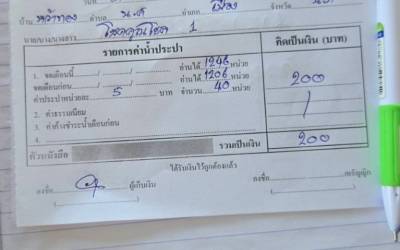 บ้าน หัวทอง ตำบล น.ต อำเภอ เมือง จังหวัด
นาย/นาง/นางสาว 1
รายการค่าน้ำประปา คิดเป็นเงิน (บาท)
1. จดเดือนนี้ / / อ่านได้ 1246 หน่วย
จดเดือนก่อน / / อ่านได้ 1206 หน่วย 200
ค่าประปาหน่วยละ 5 บาท จำนวน 40 หน่วย
2. ค่าธรรมเนียม /
3. ค่าค้างชำระน้ำเดือนก่อน
4.
ตัวหนังสือ รวมเป็นเงิน 200
ได้รับเงินไว้ถูกต้องแล้ว
ลงชื่อ ผู้เก็บเงิน ลงชื่อ เหรัญญิก